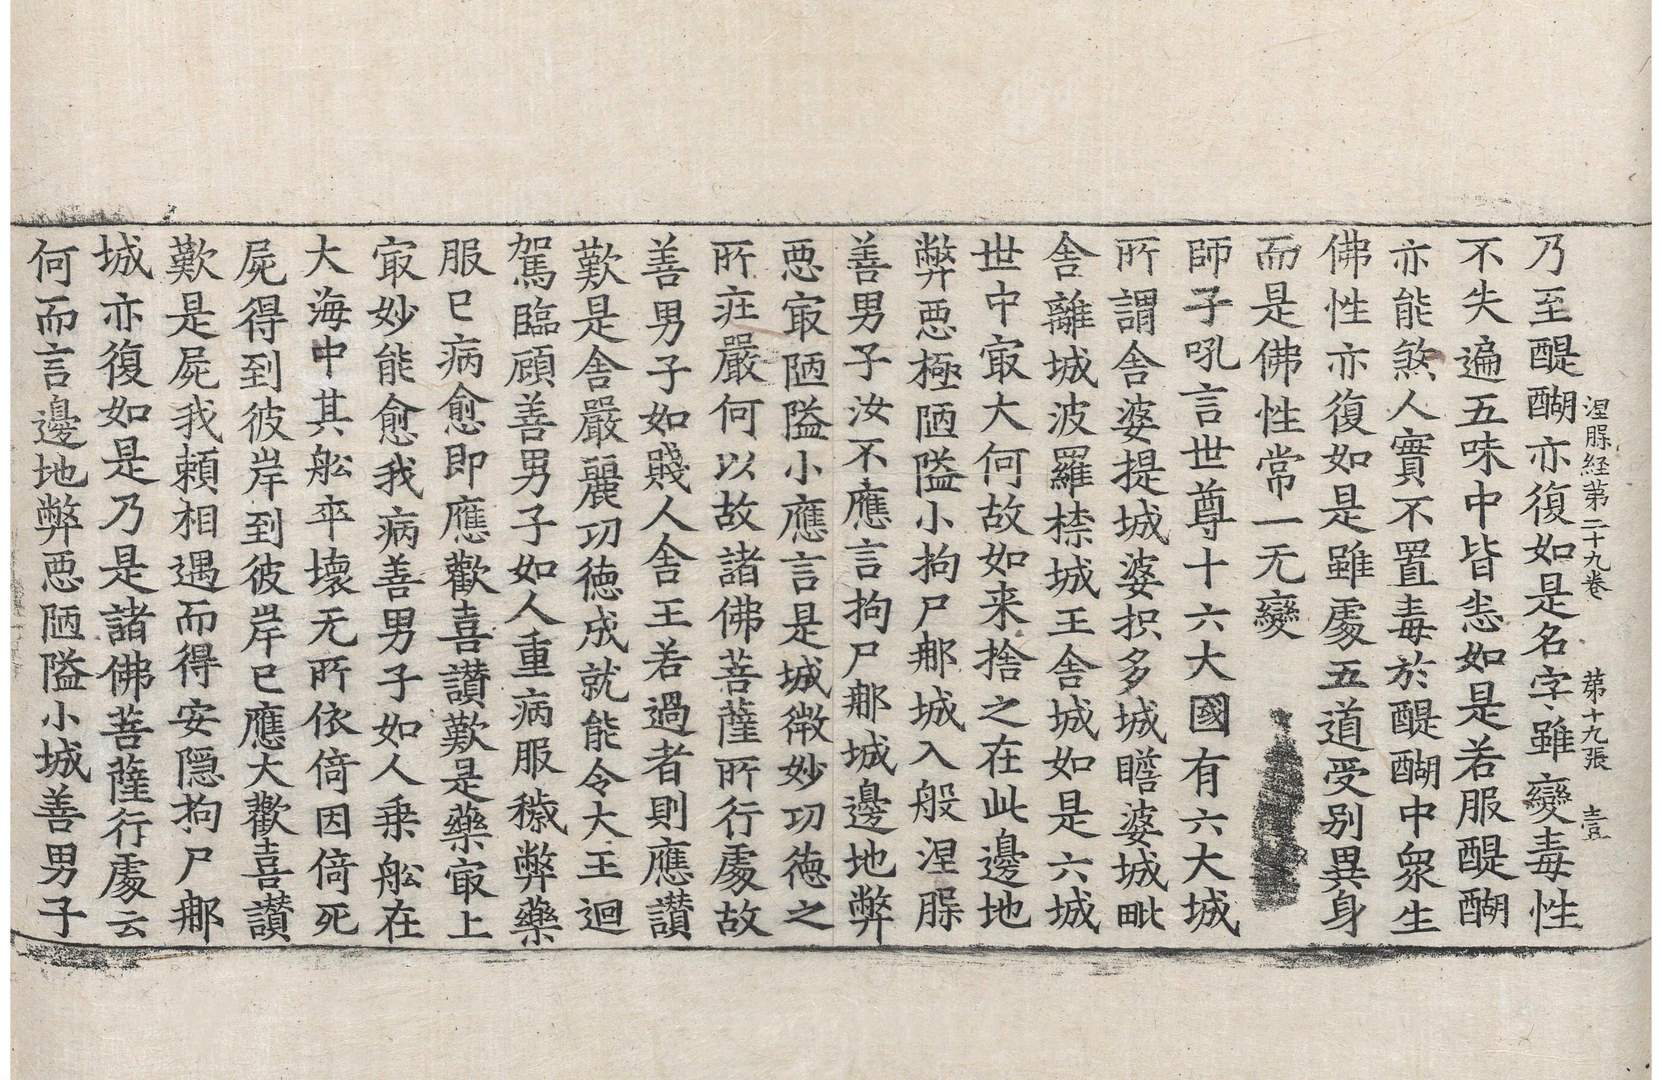 涅脲経第二十九卷　第十九張　壹
乃至醍醐亦復如是名字雖變毒性
不失遍五味中皆悉如是若服醍醐
亦能煞人實不置毒於醍醐中衆生
佛性亦復如是雖處五道受别異身
而是佛性常一无變
師子吼言世尊十六大國有六大城
所謂舍婆提城婆抧多城瞻婆城毗
舍離城波羅㮈城王舍城如是六城
世中㝡大何故如来捨之在此邊地
弊惡極陋隘小拘尸那城入般涅脲
善男子汝不應言拘尸那城邊地弊
惡㝡陋隘小應言是城微妙功德之
所莊嚴何以故諸佛菩薩所行處故
善男子如賤人舍王若過者則應讃
歎是舍嚴麗功德成就能令大王迴
駕臨顧善男子如人重病服穢弊藥
服已病愈即應歡喜讃歎是藥㝡上
㝡妙能愈我病善男子如人乗舩在
大海中其舩卒壞无所依倚因倚死
屍得到彼岸到彼岸已應大歡喜讃
歎是屍我頼相遇而得安隠拘尸那
城亦復如是乃是諸佛菩薩行處云
何而言邊地弊惡陋隘小城善男子